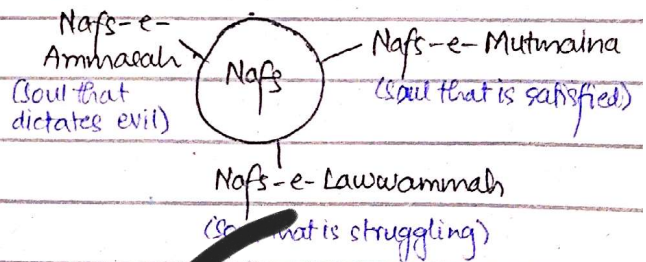 Nafs-e-
Ammarah
(Soul that
dictates evil)
Nafs
Nafs-e-Mutmaina
(Soul that is satisfied)
Nafs-e-Lawwammah
that is struggling)